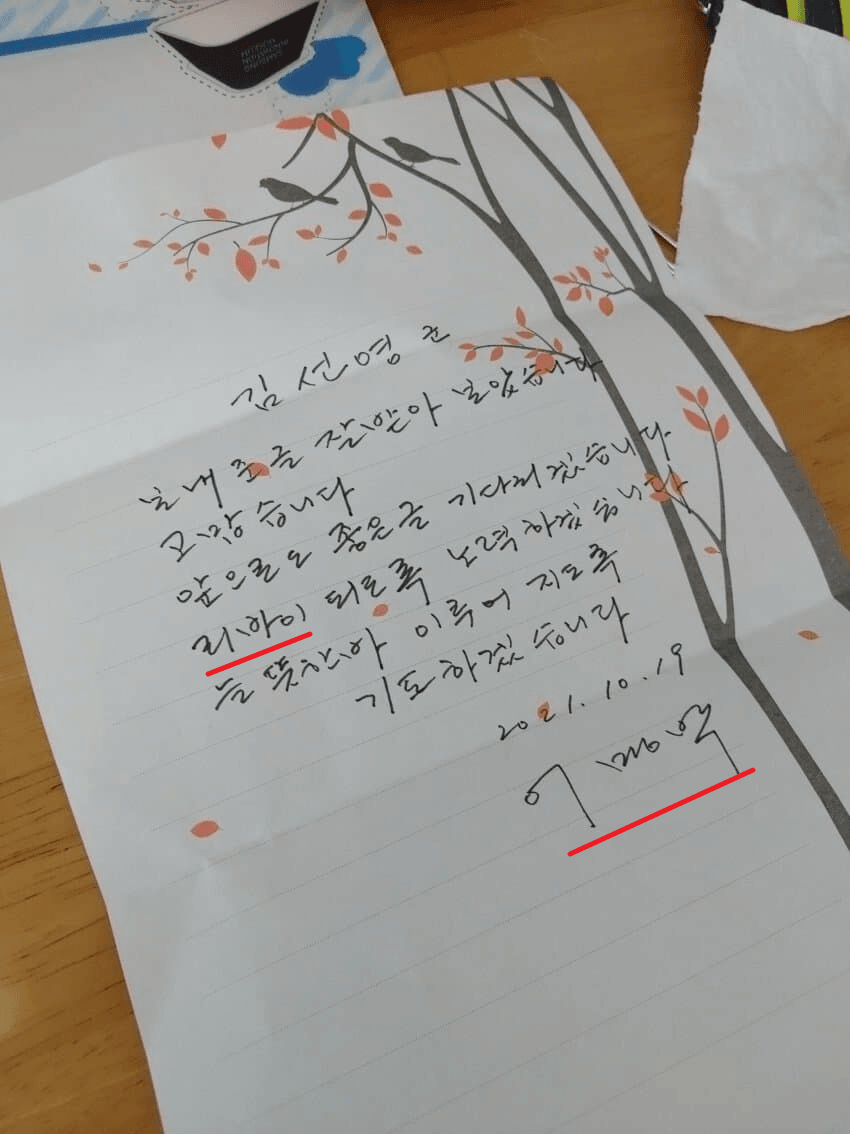 SAMSUNG
INNOVATION
MUSEUM
김선영 군
보내 준글 잘 받아 보았습니다
고맙습니다
앞으로도 좋은글 기다리겠습니다
되도록 노력하겠습니다
늘 뜻한바 이루어 지도록
기도하겠습니다
2021. 10. 19
이